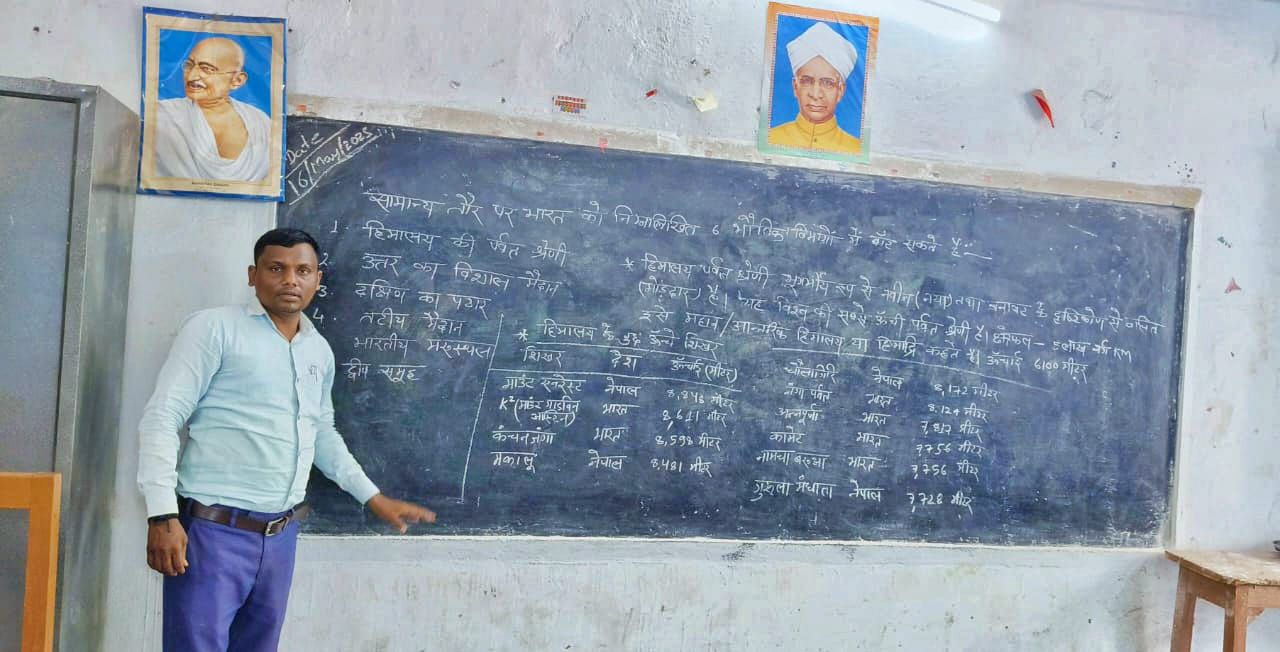 Date=
16/May/2025
सामान्य तौर पर भारत को निम्नलिखित 6 भौतिक विभागों में बाँट सकते है:-
1. हिमालय की पर्वत श्रेणी
2. उत्तर का विशाल मैदान
3. दक्षिण का पठार
4. तटीय मैदान
भारतीय मरुस्थल
द्वीप समूह
* हिमालय पर्वत श्रेणी भूगर्भीय रूप से नवीन (नया) तथा बनावट के दृष्टिकोण से वलित
(मोड़दार) है। यह विश्व की सबसे ऊँची पर्वत श्रेणी है। क्षेत्रफल - 5 लाख वर्ग KM
इसे महान/आन्तरिक हिमालय या हिमाद्रि कहते है। ऊँचाई 6100 मीटर
* हिमालय के कुछ ऊँचे शिखर
शिखर देश ऊँचाई (मीटर)
माउंट एवरेस्ट नेपाल 8,848 मीटर
K² (माउंट गाडविन भारत 8,611 मीटर
आस्टिन)
कंचनजंगा भारत 8,598 मीटर
मकालू नेपाल 8,481 मीटर
धौलागिरि नेपाल 8,172 मीटर
नंगा पर्वत भारत 8,124 मीटर
अन्नपूर्णा भारत मीटर
कामेट भारत 7,756 मीटर
नामचा बरुआ भारत 7,756 मीटर
गुरुला मंधाता नेपाल 7,728 मीटर